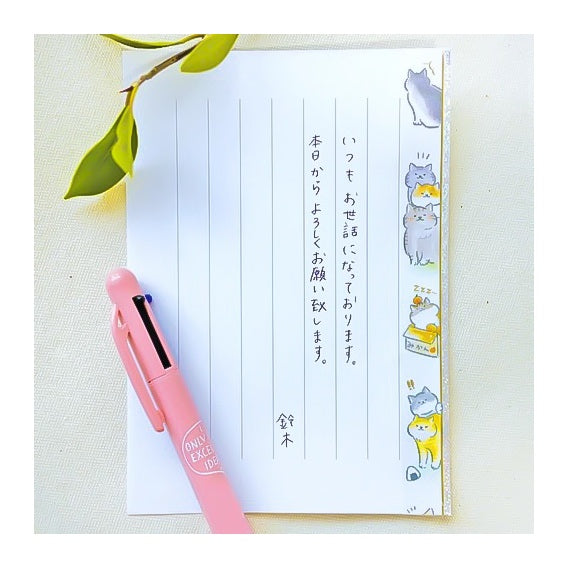 いつも お世話になっております。
本日から よろしくお願い致します。
鈴木
zzz
みかん
!!
ONLY